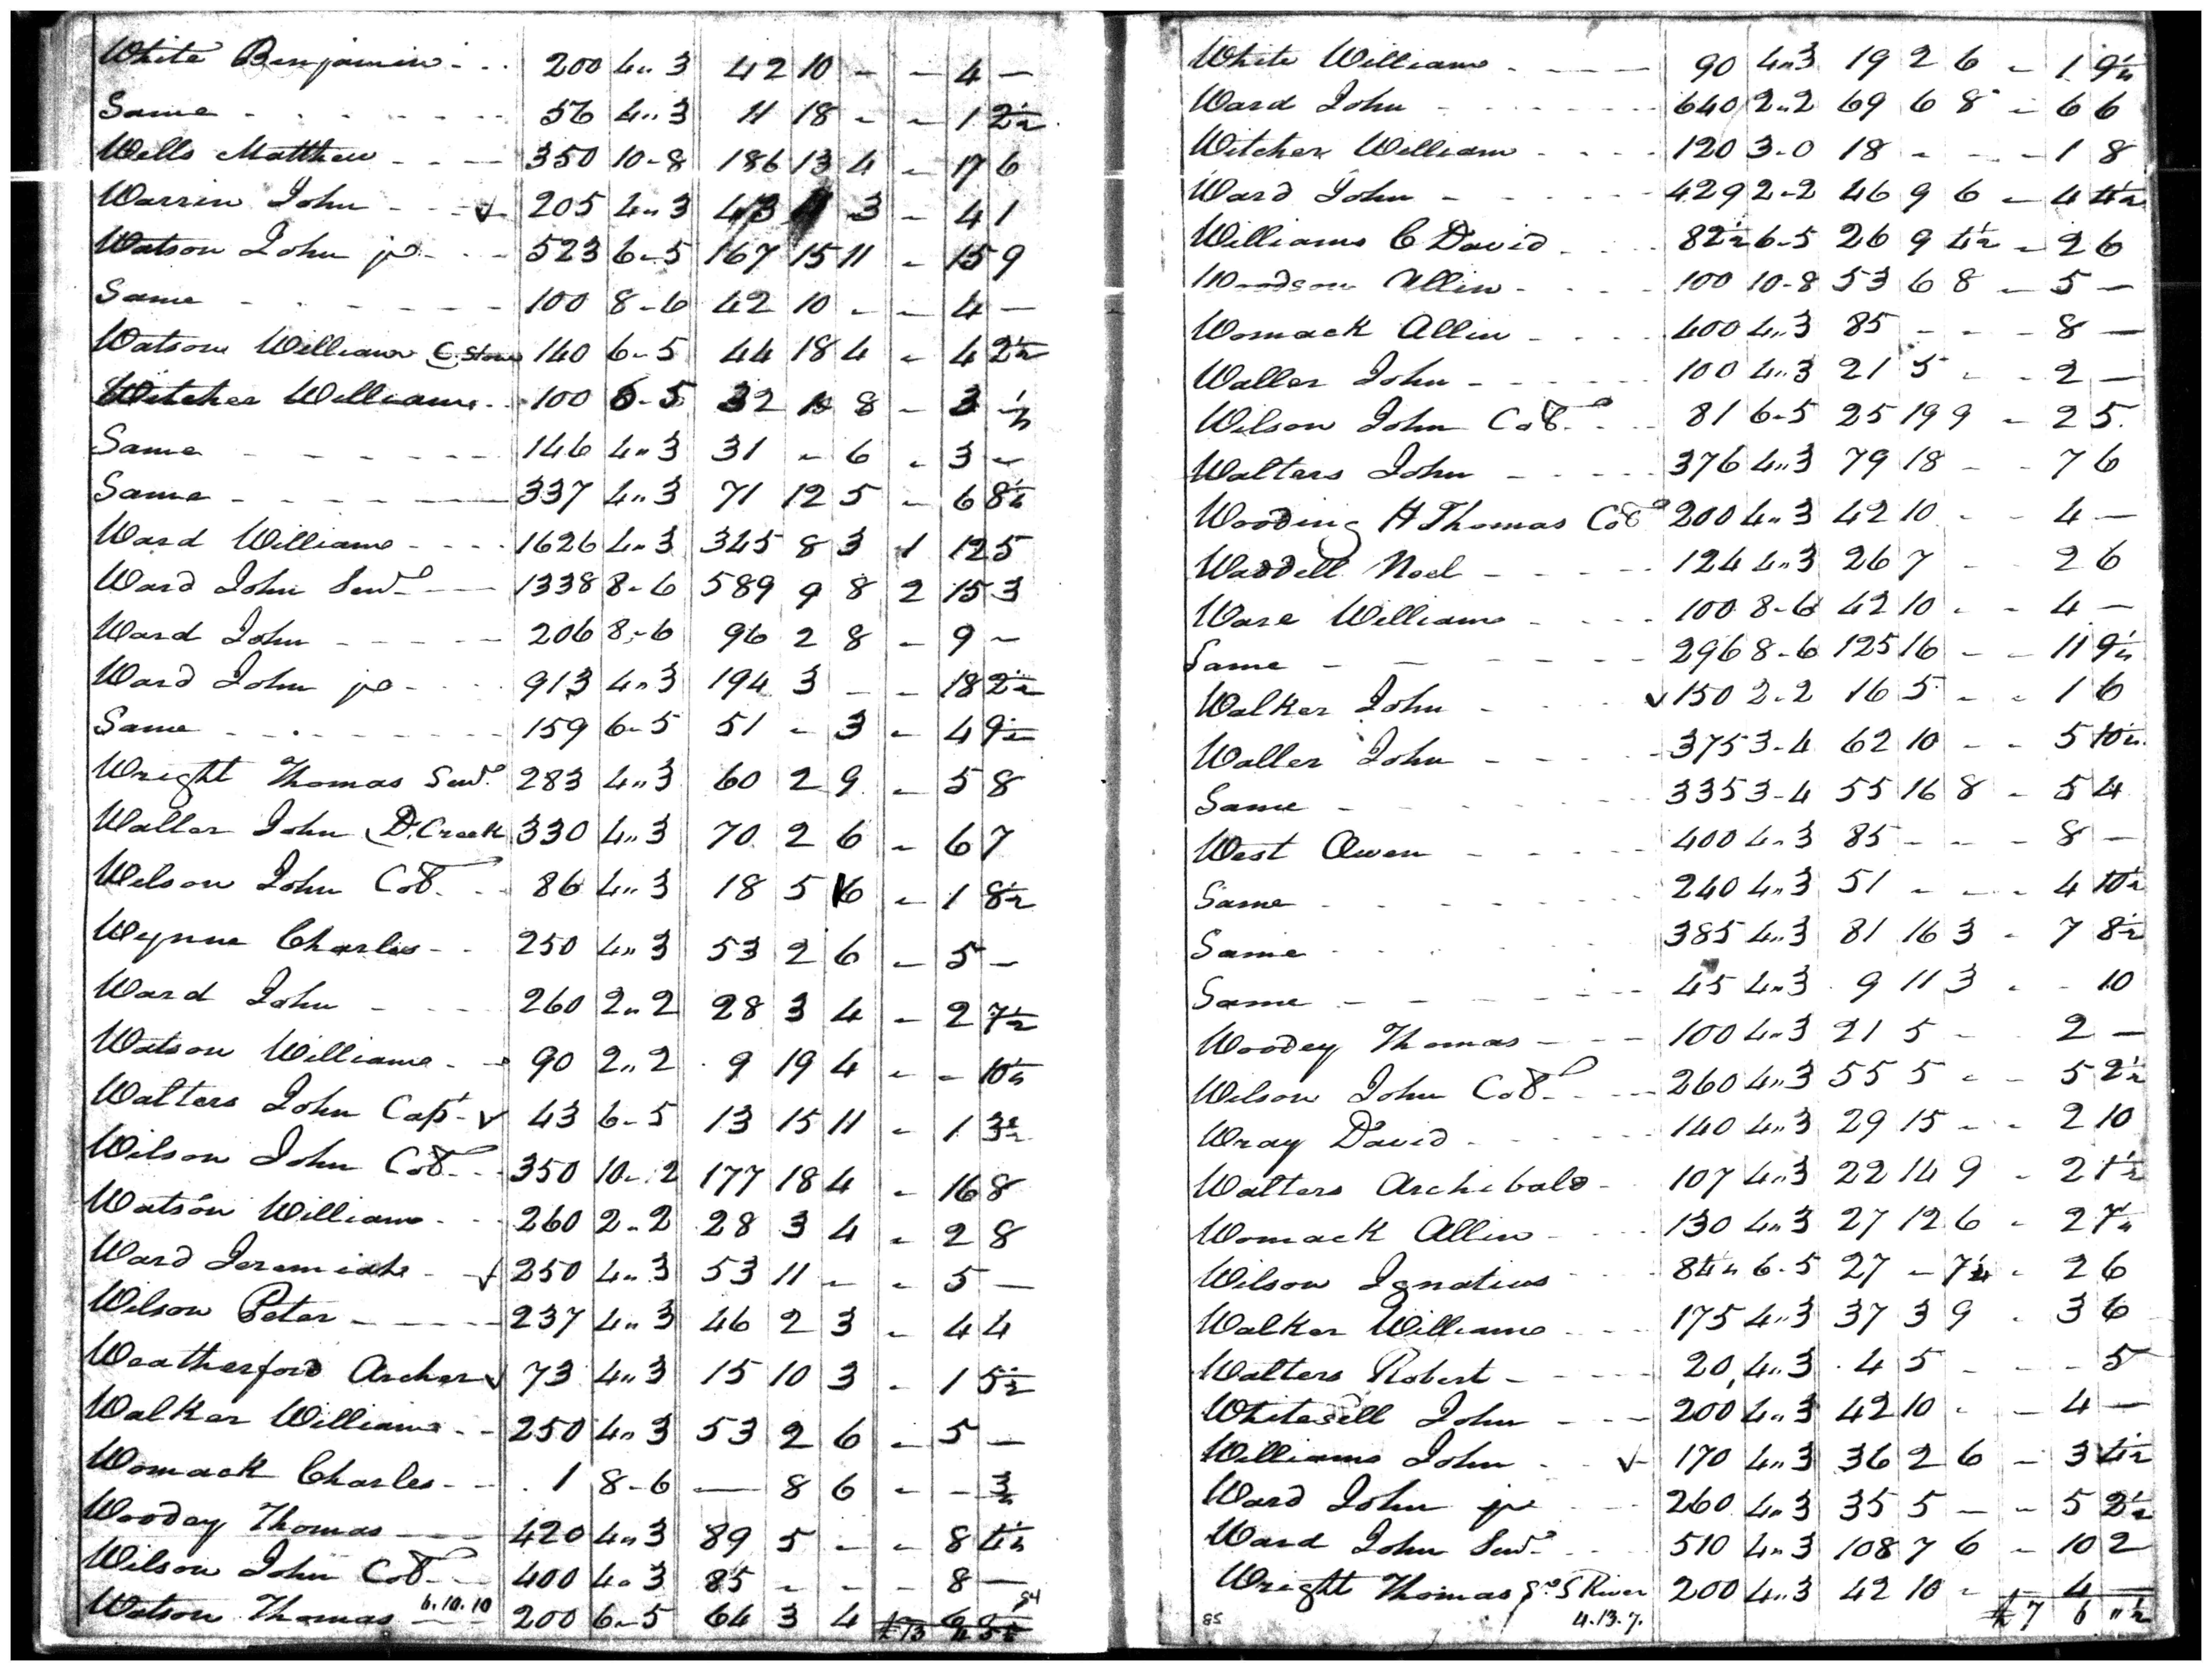 White Benjamin - - - 200 4..3 42 10 - - 4 -
Same - - - - - 56 4..3 11 18 - - 1 2½
Wells Matthew - - - 350 10-8 186 13 4 - 17 6
Warrin John - - ✓ 205 4..3 43 3 - 4 1
Watson John jr - - - 523 6-5 167 15 11 - 15 9
Same - - - - - 100 8-6 42 10 - - 4 -
Watson William C. Stone 140 6-5 44 18 4 - 4 2½
Witcher William - - 100 6-5 32 8 - 3 ½
Same - - - - - 146 4..3 31 - 6 - 3 -
Same - - - - - 337 4..3 71 12 5 - 6 8½
Ward William - - - - 1626 4..3 345 8 3 1 12 5
Ward John Senr - - - 1338 8-6 589 9 8 2 15 3
Ward John - - - - - 206 8-6 96 2 8 - 9 -
Ward John jr - - - 913 4..3 194 3 - - 18 2½
Same - - - - - 159 6-5 51 - 3 - 4 9½
Wright Thomas Senr 283 4..3 60 2 9 - 5 8
Waller John D. Creek 330 4..3 70 2 6 - 6 7
Wilson John Col. - - 86 4..3 18 5 6 - 1 8½
Wynne Charles - - 250 4..3 53 2 6 - 5 -
Ward John - - - 260 2..2 28 3 4 - 2 7½
Watson William - - 90 2..2 9 19 4 - - 10½
Walters John Capt - ✓ 43 6-5 13 15 11 - 1 3½
Wilson John Col. - - 350 10-2 177 18 4 - 16 8
Watson William - - - 260 2-2 28 3 4 - 2 8
Ward Jeremiah - ✓ 250 4..3 53 11 - - 5 -
Wilson Peter - - - - 237 4..3 46 2 3 - 4 4
Weatherford Archer ✓ 73 4..3 15 10 3 - 1 5½
Walker William - - 250 4..3 53 2 6 - 5 -
Womack Charles - - 1 8-6 - 8 6 - - ½
Woodey Thomas - - 420 4..3 89 5 - - 8 4½
Wilson John Col. - - 400 4..3 85 - - - 8 -
Watson Thomas 6.10.10 200 6-5 64 3 4
84
White William - - - - 90 4..3 19 2 6 - 1 9½
Ward John - - - - - 640 2..2 69 6 8 - 6 6
Witcher William - - - - 120 3-0 18 - - - 1 8
Ward John - - - - - 429 2-2 46 9 6 - 4 4½
Williams C David - - - 82½ 6-5 26 9 4½ - 2 6
Woodson Allin - - - - 100 10-8 53 6 8 - 5 -
Womack Allin - - - - 400 4..3 85 - - - 8 -
Waller John - - - - - 100 4..3 21 5 - - 2 -
Wilson John Col. - - 81 6-5 25 19 9 - 2 5
Walters John - - - - 376 4..3 79 18 - - 7 6
Wooding H Thomas Col. 200 4..3 42 10 - - 4 -
Waddell Noel - - - - 124 4..3 26 7 - 2 6
Ware William - - - - 100 8-6 42 10 - - 4 -
Same - - - - - 296 8-6 125 16 - - 11 9½
Walker John - - ✓ 150 2-2 16 5 - - 1 6
Waller John - - - - 375 3-4 62 10 - - 5 10½
Same - - - - - 335 3-4 55 16 8 - 5 4
West Owen - - - - 400 4..3 85 - - - 8 -
Same - - - - - 240 4..3 51 - - - 4 10½
Same - - - - - 385 4..3 81 16 3 - 7 8½
Same - - - - - 45 4..3 9 11 3 - - 10
Woodey Thomas - - - 100 4..3 21 5 - - 2 -
Wilson John Col. - - - 260 4..3 55 5 - - 5 2½
Wray David - - - - 140 4..3 29 15 - - 2 10
Walters Archibald - 107 4..3 22 14 9 - 2 1½
Womack Allin - - - 130 4..3 27 12 6 - 2 7½
Wilson Ignatius - - 84½ 6-5 27 - 7½ - 2 6
Walker William - - - 175 4..3 37 3 9 - 3 6
Walters Robert - - - - 20 4..3 4 5 - - - 5
Whitesell John - - - 200 4..3 42 10 - - 4 -
Williams John - ✓ 170 4..3 36 2 6 - 3 4½
Ward John jr - - 260 4..3 35 5 - - 5 2½
Ward John Senr - - - 510 4..3 108 7 6 - 10 2
Wright Thomas S River 200 4..3 42 10 - 4 -
85 4.13.7. £ 7 6 11½